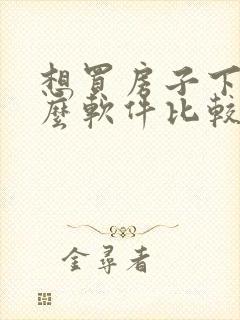 想買房子下
麼軟件比較
金尋者